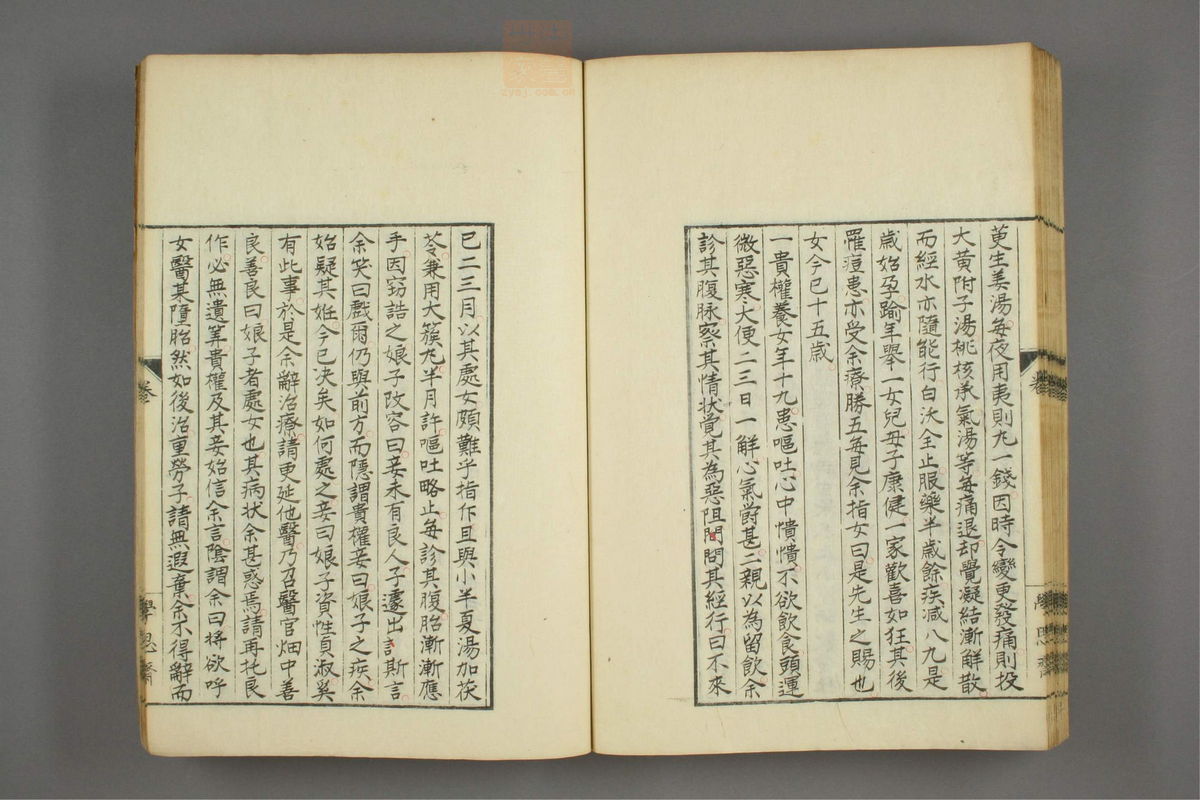 茰生姜湯每夜用夷則丸一錢因時令變更發痛則投
大黃附子湯桃核承氣湯等每痛退却覺凝結漸解散
而經水亦隨能行白沃全止服藥半歲餘疾減八九是
歲始孕踰年舉一女兒母子康健一家歡喜如狂其後
罹痘患亦受余療勝五每見余指女曰是先生之賜也
女今已十五歲
一貴權養女年十九患嘔吐心中憒憒不欲飲食頭運
微惡寒大便二三日一解心氣欝甚二親以為留飲余
診其腹脉察其情狀覺其為惡阻問其經行曰不來
已二三月以其處女頗難乎指作且與小半夏湯加茯
苓兼用大簇丸半月許嘔吐略止每診其腹胎漸漸應
手因窃詰之娘子改容曰妾未有良人子遽出訶斯言
余笑曰戲爾仍與前方而隱謂貴權妾曰娘子之疾余
始疑其妊今已决矣如何處之妾曰娘子資性貞淑奚
有此事於是余辭治療請更延他醫乃召醫官畑中善
良善良曰娘子者處女也其病狀余甚惑焉請再托良
作必無遺筭貴權及其妾始信余言陰謂余曰將欲呼
女醫某墮胎然如後治重勞子請無遐棄余不得辭而
卷
學思齋